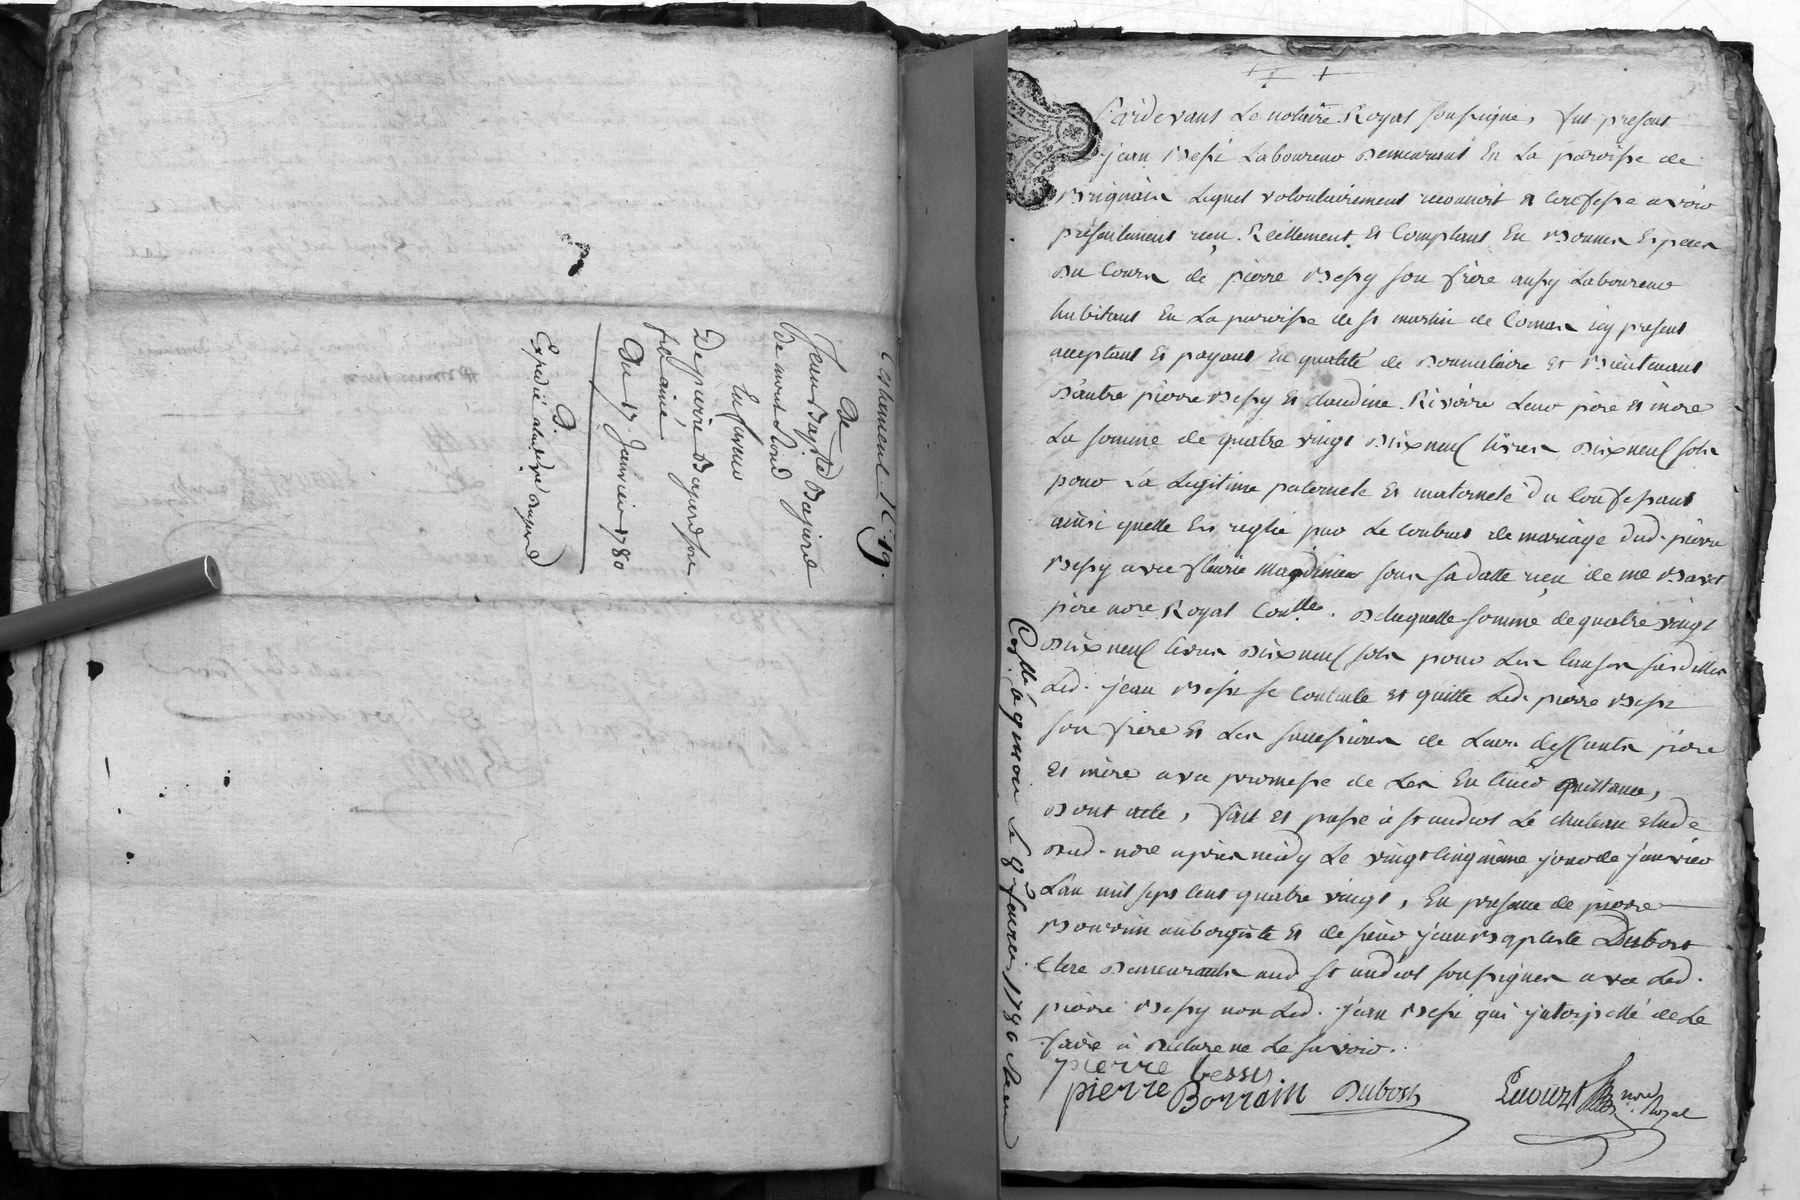 Testament Nº 19.
De
Jean Baptte Bajard
De mont Rond
En faveur
De pierre Bajard son
fr. ainé
Du 17 Janvier 1780
D.
Expedié aud. pre Bajard
Pardevant Le notaire Royal soussigné, fut present
jean Bessi Laboureur Demeurant En La paroisse de
Brignais Lequel volontairement reconnoit & confesse avoir
présentement reçu Réellement Et Comptant En Bonnes Especes
Du Cours de pierre Bessy son frère aussy Laboureur
habitant En La paroisse de st martin de Cornas icy present
acceptant Et payant En qualité de Donnataire Et Bientenant
D'autre pierre Bessy Et claudine Rivoire Leur père Et mère
La somme de quatre vingt Dixneuf livres Dixneuf sols
pour La Legitime paternele Et maternele Du Confessant
ainsi quelle Est reglée par Le Contrat de mariage dud. pierre
Bessy avec fleurie sous sa datte reçu de me
père nore Royal Coulle. De laquelle somme de quatre vingt
Dixneuf livres Dixneuf sols pour Les causes susdittes
Led. jean Bessi se Contente Et quitte Led. pierre Bessi
son frère Et Les successions de Leurs deffunts père
Et mère avec promesse de Les En tenir quittance,
Dont acte, fait Et passé à st andeol Le chateau Etude
Dud. nore après midy Le vingt cinquième jour de janvier
L'an mil sept cent quatre vingt, En presence de pierre
Bourrin aubergiste Et de sieur jean Baptiste Dubost
Clerc Demeurants aud. st andeol soussignés avec Led.
pierre Bessy non Led. jean Bessi qui interpellé de Le
faire à Declaré ne Le savoir.
pierre bessy
pierre Borrain Dubost nore Royal
Collé à le 8 fevrier 1780